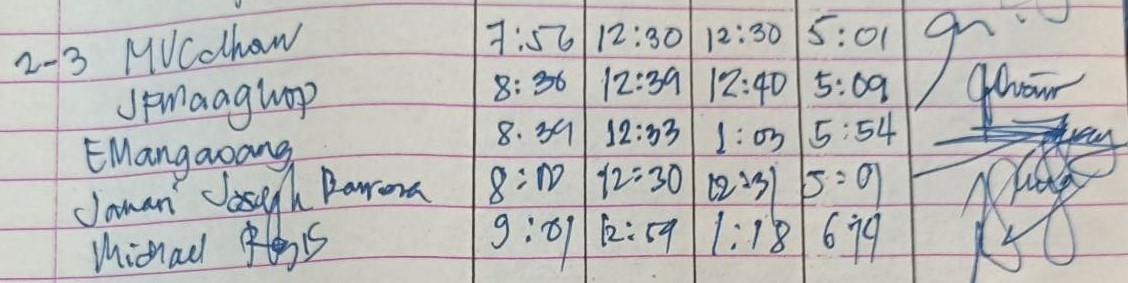 2-3 MVCdhan 7:56 12:30 12:30 5:01
JFMaaghop 8:36 12:39 12:40 5:09
EMangaoang 8:39 12:33 1:03 5:54
Janari Joseph 8:10 12:30 12:31 5:01
Michael 9:01 12:59 1:18